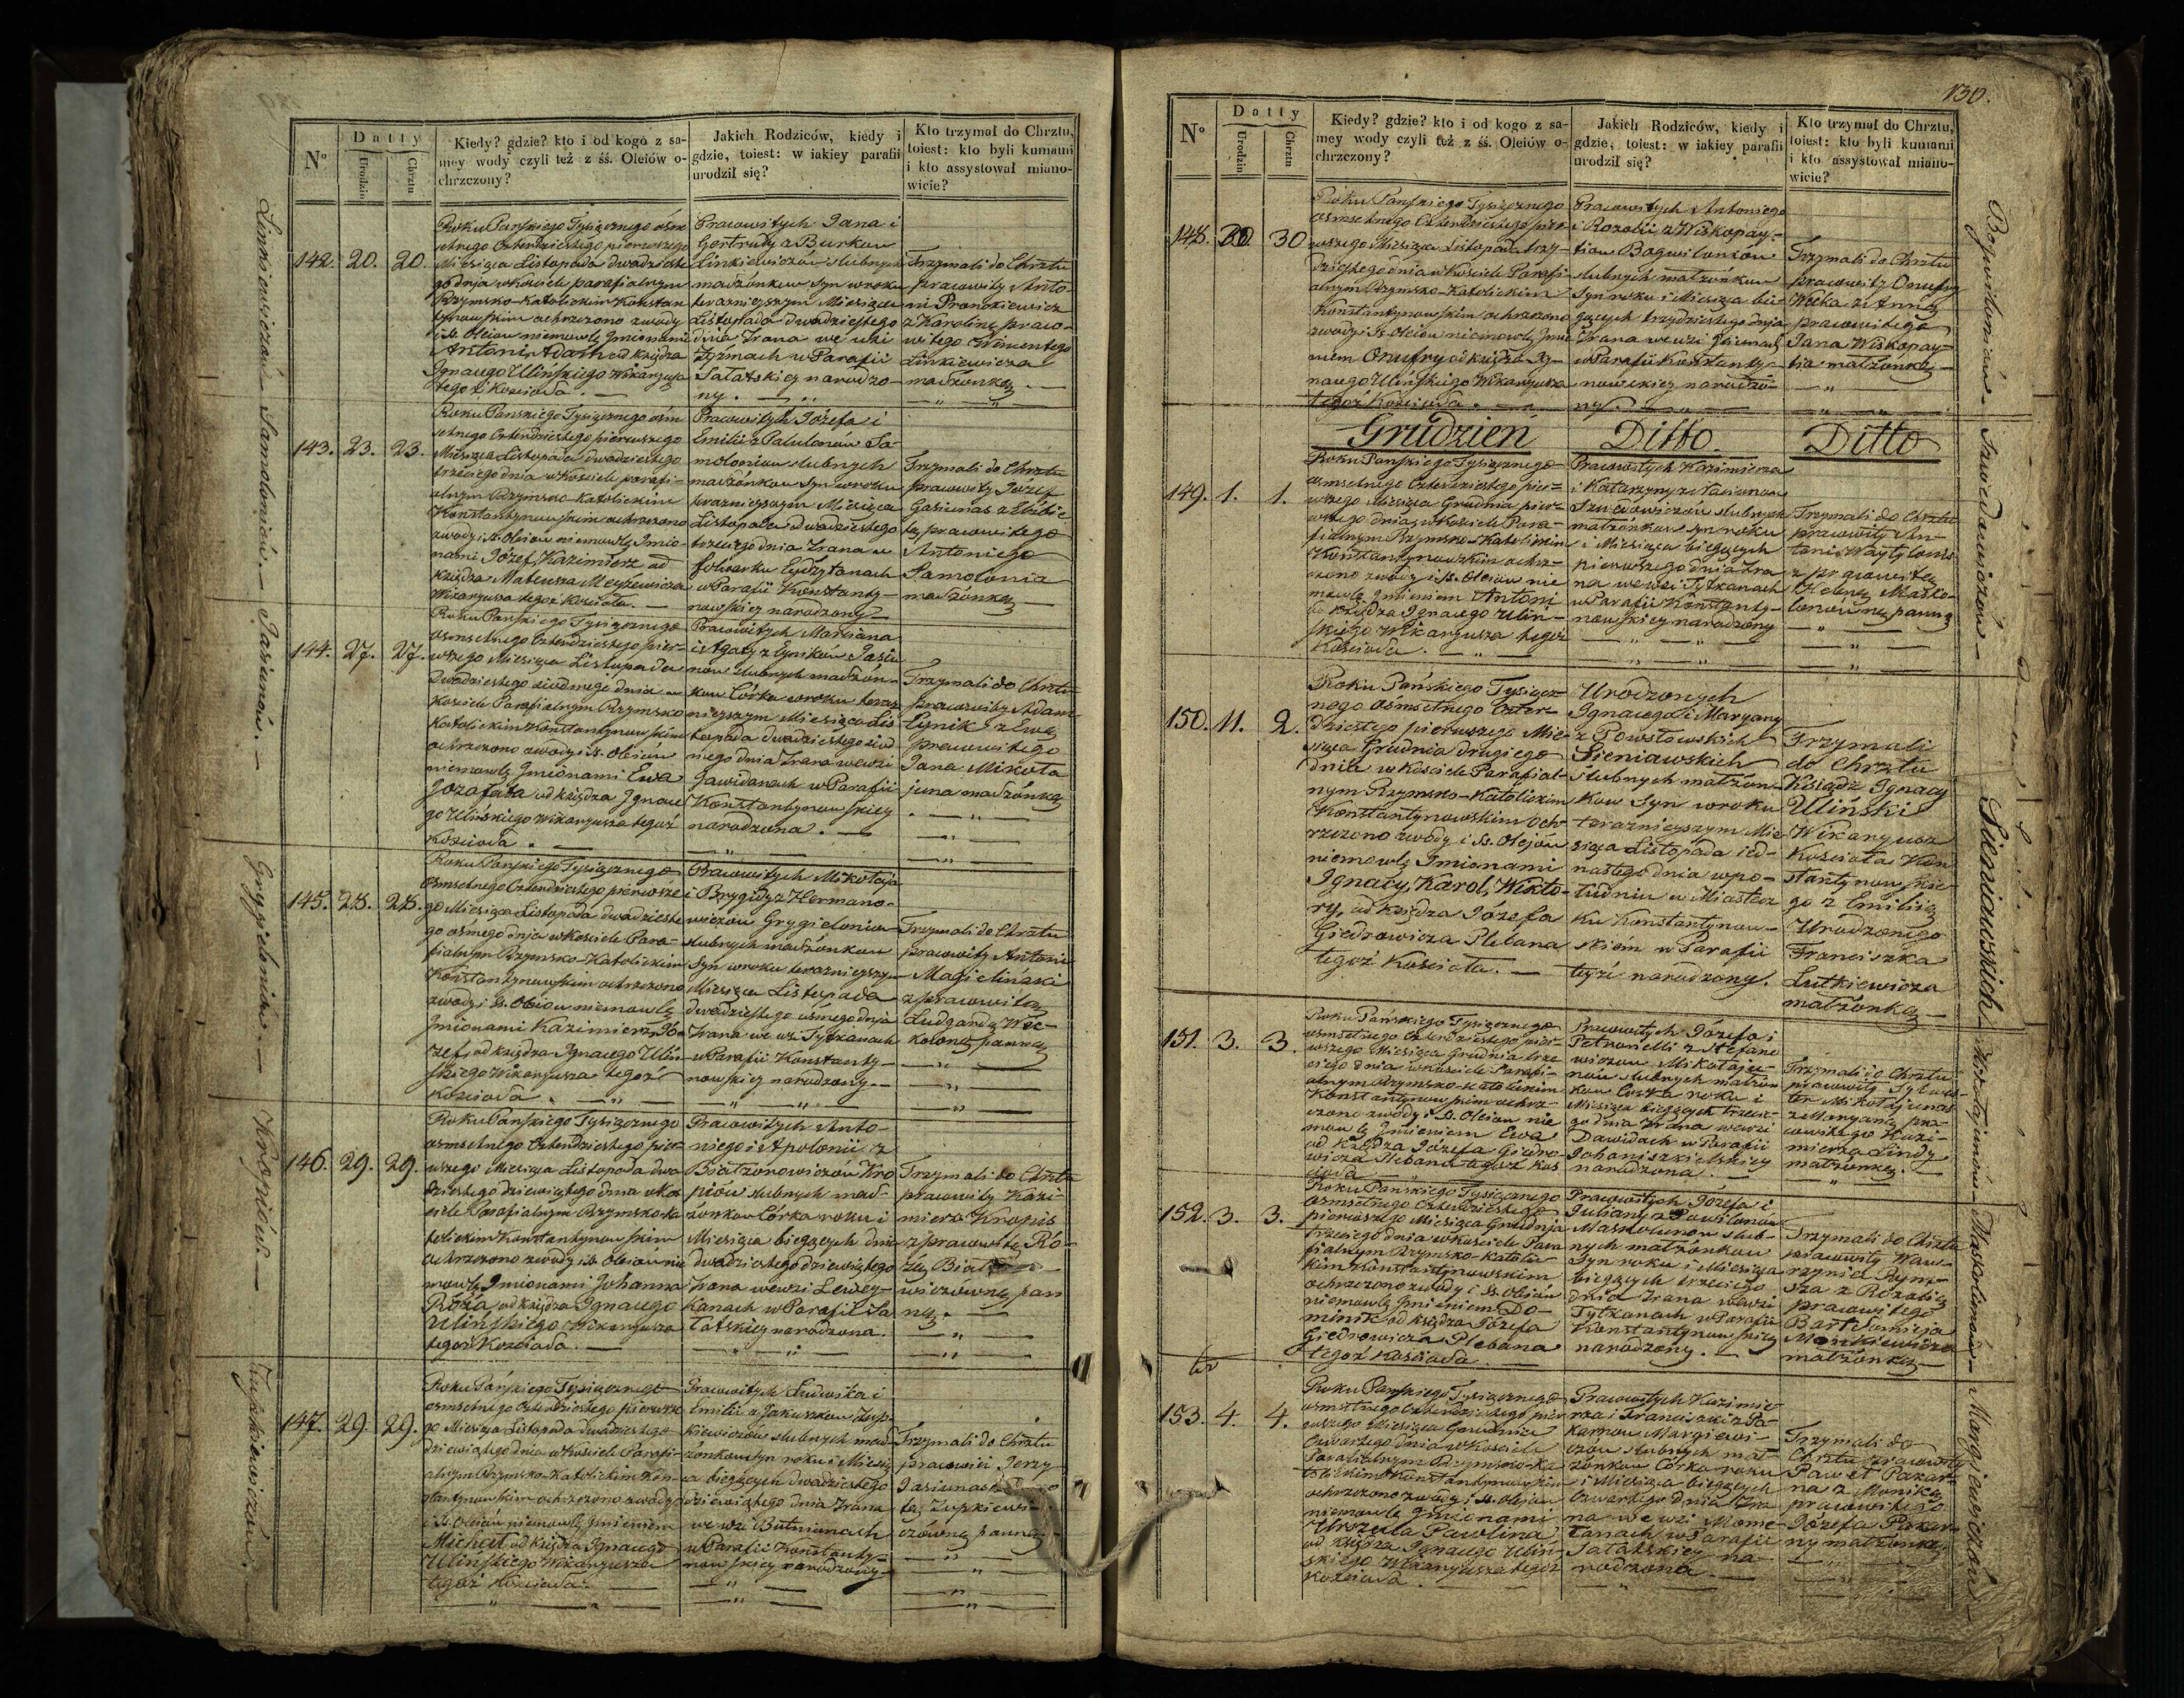 N°
Datty
Urodzin
Chrztu
Kiedy? gdzie? kto i od kogo z sa-
mey wody czyli też z śś. Oleiów o-
chrzczony?
Jakich Rodziców, kiedy i
gdzie, toiest: w iakiey parafii
urodził się?
Kto trzymał do Chrztu,
toiest: kto byli kumami
i kto assystował miano-
wicie?
Linkiewiczów
142. 20. 20.
Roku Pańskiego Tysiącznego ósm
setnego Czterdziestego pierwszego
Miesiąca Listopada dwudzieste
go dnia w kościele parafialnym
Rzymsko-Katolickim Konstan
tynowskim ochrzczono z wody
i śś. Oleiow niemowlę Imionami
Antoni Adam od księdza
Ignacego Ulińskiego Wikaryusza
tegoż Kościoła. —
Pracowitych Jana i
Gertrudy z Burkow
Linkiewiczów slubnych
małżonkow syn w roku
teraznieyszym Miesiącu
Listopada dwudziestego
dnia z rana we wsi
Zyżmach w Parafii
Sałatskiey narodzo-
ny. —
Trzymali do Chrztu
pracowity Anto-
ni Pronckiewicz
z Karoliną praco-
witego Klimentego
Linkiewicza
małżonką. —
Samoloniów. —
143. 23. 23.
Roku Pańskiego Tysiącznego ośm
setnego Czterdziestego pierwszego
Miesiąca Listopada dwudziestego
trzeciego dnia w Kościele parafi-
alnym Rzymsko-Katolickim
Konstantynowskim ochrzczono
z wody i śś. Oleiow niemowlę Imio-
nami Józef, Kazimierz od
księdza Mateusza
Wikaryusza tegoż Kościoła. —
Pracowitych Józefa i
Emilii z Palulonów Sa-
moloniow slubnych
małżonkow syn w roku
teraznieyszym Miesiąca
Listopada dwudziestego
trzeciego dnia z rana w
folwarku
w Parafii Konstanty-
nowskiey narodzony —
Trzymali do Chrztu
pracowity Józef
Gasiunas z Elżbie
tą pracowitego
Antoniego
Samolonia
małżonką —
Jasiunów. —
144. 27. 27.
Roku Pańskiego Tysiącznego
osmsetnego Czterdziestego pier-
wszego Miesiąca Listopada
dwudziestego siodmego dnia w
Kosciele Parafialnym Rzymsko
Katolickim Konstantynowskim
ochrzczono z wody i śś. Oleiów
niemowlę Imionami Ewa
Jozafata od księdza Ignace
go Ulińskiego Wikaryusza tegoż
Kościoła. —
Pracowitych Marciana
i Agaty z Cynikow Jasiu
now slubnych małżon-
kow Córka w roku teraz
nieyszym Miesiąca Lis
topada dwudziestego siod
mego dnia z rana we wsi
Gawidanach w Parafii
Konstantynowskiey
narodzona. —
Trzymali do Chrztu
pracowity Adam
Cynik z Ewą
pracowitego
Jana Mikoła
juna małżonką
Grygieloniów. —
145. 28. 28.
Roku Pańskiego Tysiącznego
Osmsetnego Czterdziestego pierwsze
go Miesiąca Listopada dwudzieste
go osmego dnia w Kosciele Para-
fialnym Rzymsko-Katolickim
Konstantynowskim ochrzczono
z wody i śś. Oleiow niemowlę
Imionami Kazimierz, Jó-
zef, od księdza Ignacego Uliń
skiego Wikaryusza tegoż
Kościoła. —
Pracowitych Mikołaja
i Brygidy z Hermano-
wiczow Grygieloniow
slubnych małżonkow
Syn w roku teraznieyszym
Miesiąca Listopada
dwudziestego osmego dnia
z rana we wsi Tytkanach
w Parafii Konstanty-
nowskiey narodzony. —
Trzymali do Chrztu
pracowity Antoni
Magieliński
z pracowitą
Ludgardą Woc-
koloną panną
Kropniów. —
146. 29. 29.
Roku Pańskiego Tysiącznego
osmsetnego Czterdziestego pier
wszego Miesiąca Listopada dwu
dziestego dziewiątego dnia w Koś
ciele Parafialnym Rzymsko-ka
tolickim Konstantynowskim
ochrzczono z wody i śś. Oleiów nie
mowlę Imionami Johanna
Róża, od księdza Ignacego
Ulińskiego Wikaryusza
tegoż Kościoła. —
Pracowitych Anto-
niego i Apolonii z
Białzonowiczów Kro
pniów slubnych mał-
żonkow Córka roku i
Miesiąca bieżących dnia
dwudziestego dziewiątego
z rana we wsi
w Parafii Sa
łatskiey narodzona.
Trzymali do Chrztu
pracowity Kazi-
mierz Kropnis
z pracowitą Ró-
żą
wiczówną pan
ną. —
Zupkiewiczów.
147. 29. 29.
Roku Pańskiego Tysiącznego
osmsetnego Czterdziestego pierwsze
go Miesiąca Listopada dwudziestego
dziewiątego dnia w Kosciele Parafi-
alnym Rzymsko-Katolickim Kon-
stantynowskim ochrzczono z wody
i śś. Oleiów niemowlę Imieniem
Michał od księdza Ignacego
Ulińskiego Wikaryusza
tegoż Kościoła. —
Pracowitych Ludwika i
Emilii z Jakuszkow Zup-
kiewiczów slubnych mał
żonkow syn roku i Miesią
ca bieżących dwudziestego
dziewiątego dnia z rana
we wsi Butniunach
w Parafii Konstanty-
nowskiey narodzony —
Trzymali do Chrztu
pracowici Jerzy
Jasiunas
tą Zupkiewi-
czówną panną
130.
N°
Datty
Urodzin
Chrztu
Kiedy? gdzie? kto i od kogo z sa-
mey wody czyli też z śś. Oleiów o-
chrzczony?
Jakich Rodziców, kiedy i
gdzie, toiest: w iakiey parafii
urodził się?
Kto trzymał do Chrztu,
toiest: kto byli kumami
i kto assystował miano-
wicie?
148. 30. 30
Roku Pańskiego Tysiącznego
osmsetnego Czterdziestego pier-
wszego Miesiąca Listopada trzy-
dziestego dnia w Kościele Parafi-
alnym Rzymsko-Katolickim
Konstantynowskim ochrzczono
z wody i śś. Oleiów niemowlę Imie
niem Onufry od księdza Ig-
nacego Ulińskiego Wikaryusza
tegoż Kościoła. —
Pracowitych Antoniego
i Rozalii z Wiskopay-
tiow Bogwilonïow
slubnych małżonkow
Syn roku i Miesiąca bie-
żących trzydziestego dnia
z rana we wsi
w Parafii Konstanty-
nowskiey narodzo-
ny. —
Trzymali do Chrztu
pracowity Onufry
Wećka z Anną
pracowitego
Jana Wiskopay-
tia małżonką —
Bogwiloniów
Grudzien Ditto Ditto
149. 1. 1.
Roku Pańskiego Tysiącznego
osmsetnego Czterdziestego pier-
wszego Miesiąca Grudnia pier-
wszego dnia w Kosciele Para-
fialnym Rzymsko-Katolickim
Konstantynowskim ochrz-
czono z wody i śś. Oleiow nie
mowlę Imieniem Antoni
od księdza Ignacego Uliń-
skiego Wikaryusza tegoż
Kościoła. —
Pracowitych Kazimierza
i Katarzyny
Szwedowiczów slubnych
małżonkow syn roku
i Miesiąca bieżących
pierwszego dnia z ra
na we wsi Tytkanach
w Parafii Konstanty-
nowskiey narodzony
Trzymali do Chrztu
pracowity An-
toni
z pracowitą
Heleną Masko-
lonowną panną
150. 11. 2.
Roku Pańskiego Tysiącz-
nego Ośmsetnego Czter-
dziestego pierwszego Mie-
siąca Grudnia drugiego
dnia w Kosciele Parafial-
nym Rzymsko-Katolickim
Konstantynowskim och-
rzczono z wody i śś. Olejów
niemowlę Imionami
Ignacy, Karol, Wikto-
ry, od księdza Józefa
Giedrowicza Plebana
tegoż Kościoła. —
Urodzonych
Ignacego i Maryany
z Powstowskich
Sieniawskich
slubnych małżon-
kow Syn w roku
teraznieyszym Mie-
siąca Listopada ied-
nastego dnia w po-
łudniu w Miastecz
ku Konstantynow-
skiem w Parafii
teyże narodzony.
Trzymali
do Chrztu
Ksiądz Ignacy
Uliński
Wikaryusz
Kościoła Kon
stantynowskie
go z Emilią
Urodzonego
Franciszka
Lutkiewicza
małżonką —
Sieniawskich
151. 3. 3.
Roku Pańskiego Tysiącznego
osmsetnego Czterdziestego pier-
wszego Miesiąca Grudnia trze
ciego dnia w Kosciele Parafi-
alnym Rzymsko-Katolickim
Konstantynowskim ochrz-
czono z wody i śś. Oleiow nie
mowlę Imieniem Ewa
od księdza Józefa Giedro-
wicza Plebana tegoż Koś
cioła —
Pracowitych Józefa i
Petronelli z Stefano
wiczow Mikołaju-
now slubnych małżon
kow Corka roku i
Miesiąca bieżących trzecie-
go dnia z rana we wsi
Dawidach w Parafii
Johaniszkielskiey
narodzona. —
Trzymali do Chrztu
pracowity Sylwes-
ter Mikołajunas
z Maryanną pra-
cowitego Kazi-
mierza Lindy
małżonką. —
Mikołajunów
152. 3. 3.
Roku Pańskiego Tysiącznego
osmsetnego Czterdziestego
pierwszego Miesiąca Grudnia
trzeciego dnia w Kosciele Para
fialnym Rzymsko-Katolic-
kim Konstantynowskim
ochrzczono z wody i śś. Oleiow
niemowlę Imieniem Do-
minik od księdza Józefa
Giedrowicza Plebana
tegoż Kościoła. —
Pracowitych Józefa i
Julianny z Powilonow
Maskolunow slub-
nych małżonkow
Syn roku i Miesiąca
bieżących trzeciego
dnia z rana we wsi
Tytkanach w Parafii
Konstantynowskiey
narodzony. —
Trzymali do Chrztu
pracowity Waw-
rzyniec Rym-
sza z Rozalią
pracowitego
Bartłomieja
Monkiewicza
małżonką —
Maskoluniów
153. 4. 4.
Roku Pańskiego Tysiącznego
osmsetnego Czterdziestego pier
wszego Miesiąca Grudnia
Czwartego dnia w Kosciele
Parafialnym Rzymsko-ka
tolickim Konstantynowskim
ochrzczono z wody i śś. Olejow
niemowlę Imionami
Urszula Paulina
od księdza Ignacego Uliń-
skiego Wikaryusza tegoż
Kościoła. —
Pracowitych Kazimie
rza i Franciszki z Pa-
karnow Margiewi-
czów slubnych mał-
żonkow Corka roku
i Miesiąca bieżących
Czwartego dnia z ra
na we wsi Mome-
łanach w Parafii
Sałatskiey na-
rodzona. —
Trzymali do
Chrztu pracowity
Paweł Pakar-
na z Moniką
pracowitego
Józefa Pakar-
ny małżonką